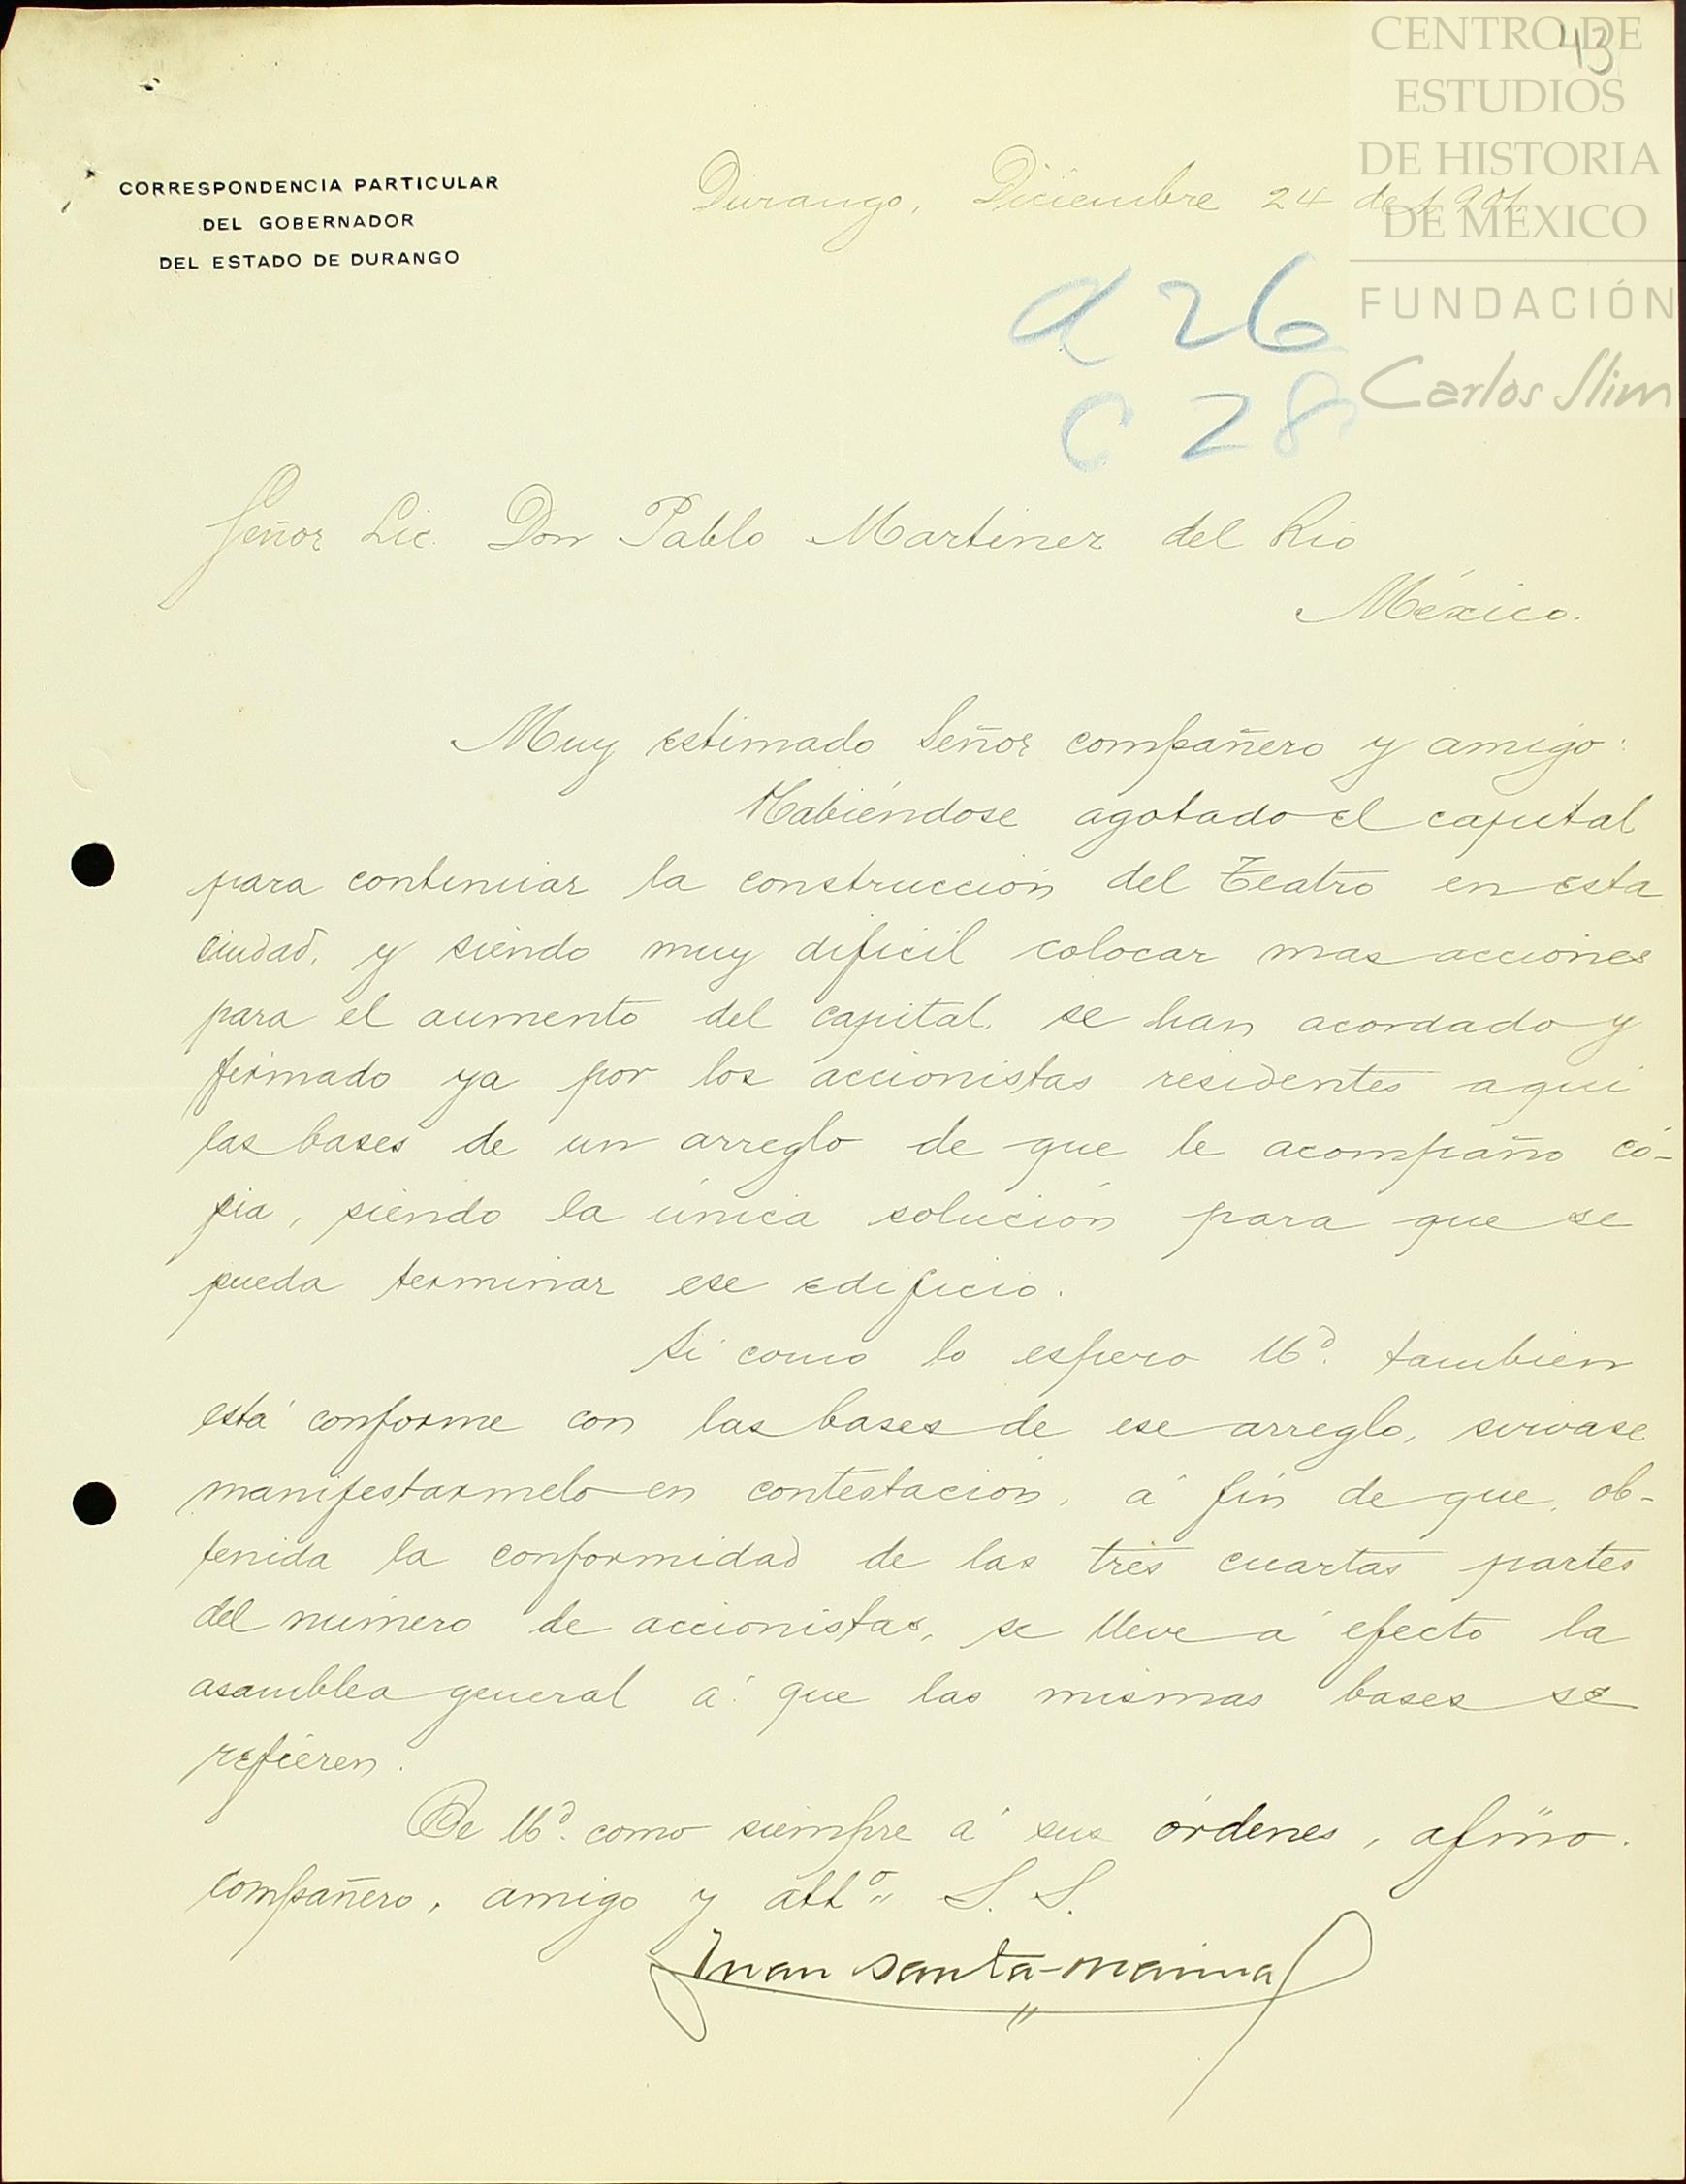 43
CENTRO DE
ESTUDIOS
DE HISTORIA
DE MÉXICO
FUNDACIÓN
Carlos Slim
CORRESPONDENCIA PARTICULAR
DEL GOBERNADOR
DEL ESTADO DE DURANGO
Durango, Diciembre 24 de 1901.
a 26
C 28
Señor Lic. Don Pablo Martinez del Rio
México.
Muy estimado Señor compañero y amigo:
Habiéndose agotado el capital
para continuar la construcción del Teatro en esta
Ciudad, y siendo muy dificil colocar mas acciones
para el aumento del capital, se han acordado y
firmado ya por los accionistas residentes aqui
las bases de un arreglo de que le acompaño có-
pia, siendo la única solución para que se
pueda terminar ese edificio.
Si como lo espero Ud. tambien
está conforme con las bases de ese arreglo, sirvase
manifestarmelo en contestación, á fin de que, ob-
tenida la conformidad de las tres cuartas partes
del número de accionistas, se lleve á efecto la
asamblea general á que las mismas bases se
refieren.
De Ud. como siempre á sus órdenes, afmo.
compañero, amigo y atto. S. S.
Juan Santa-marina